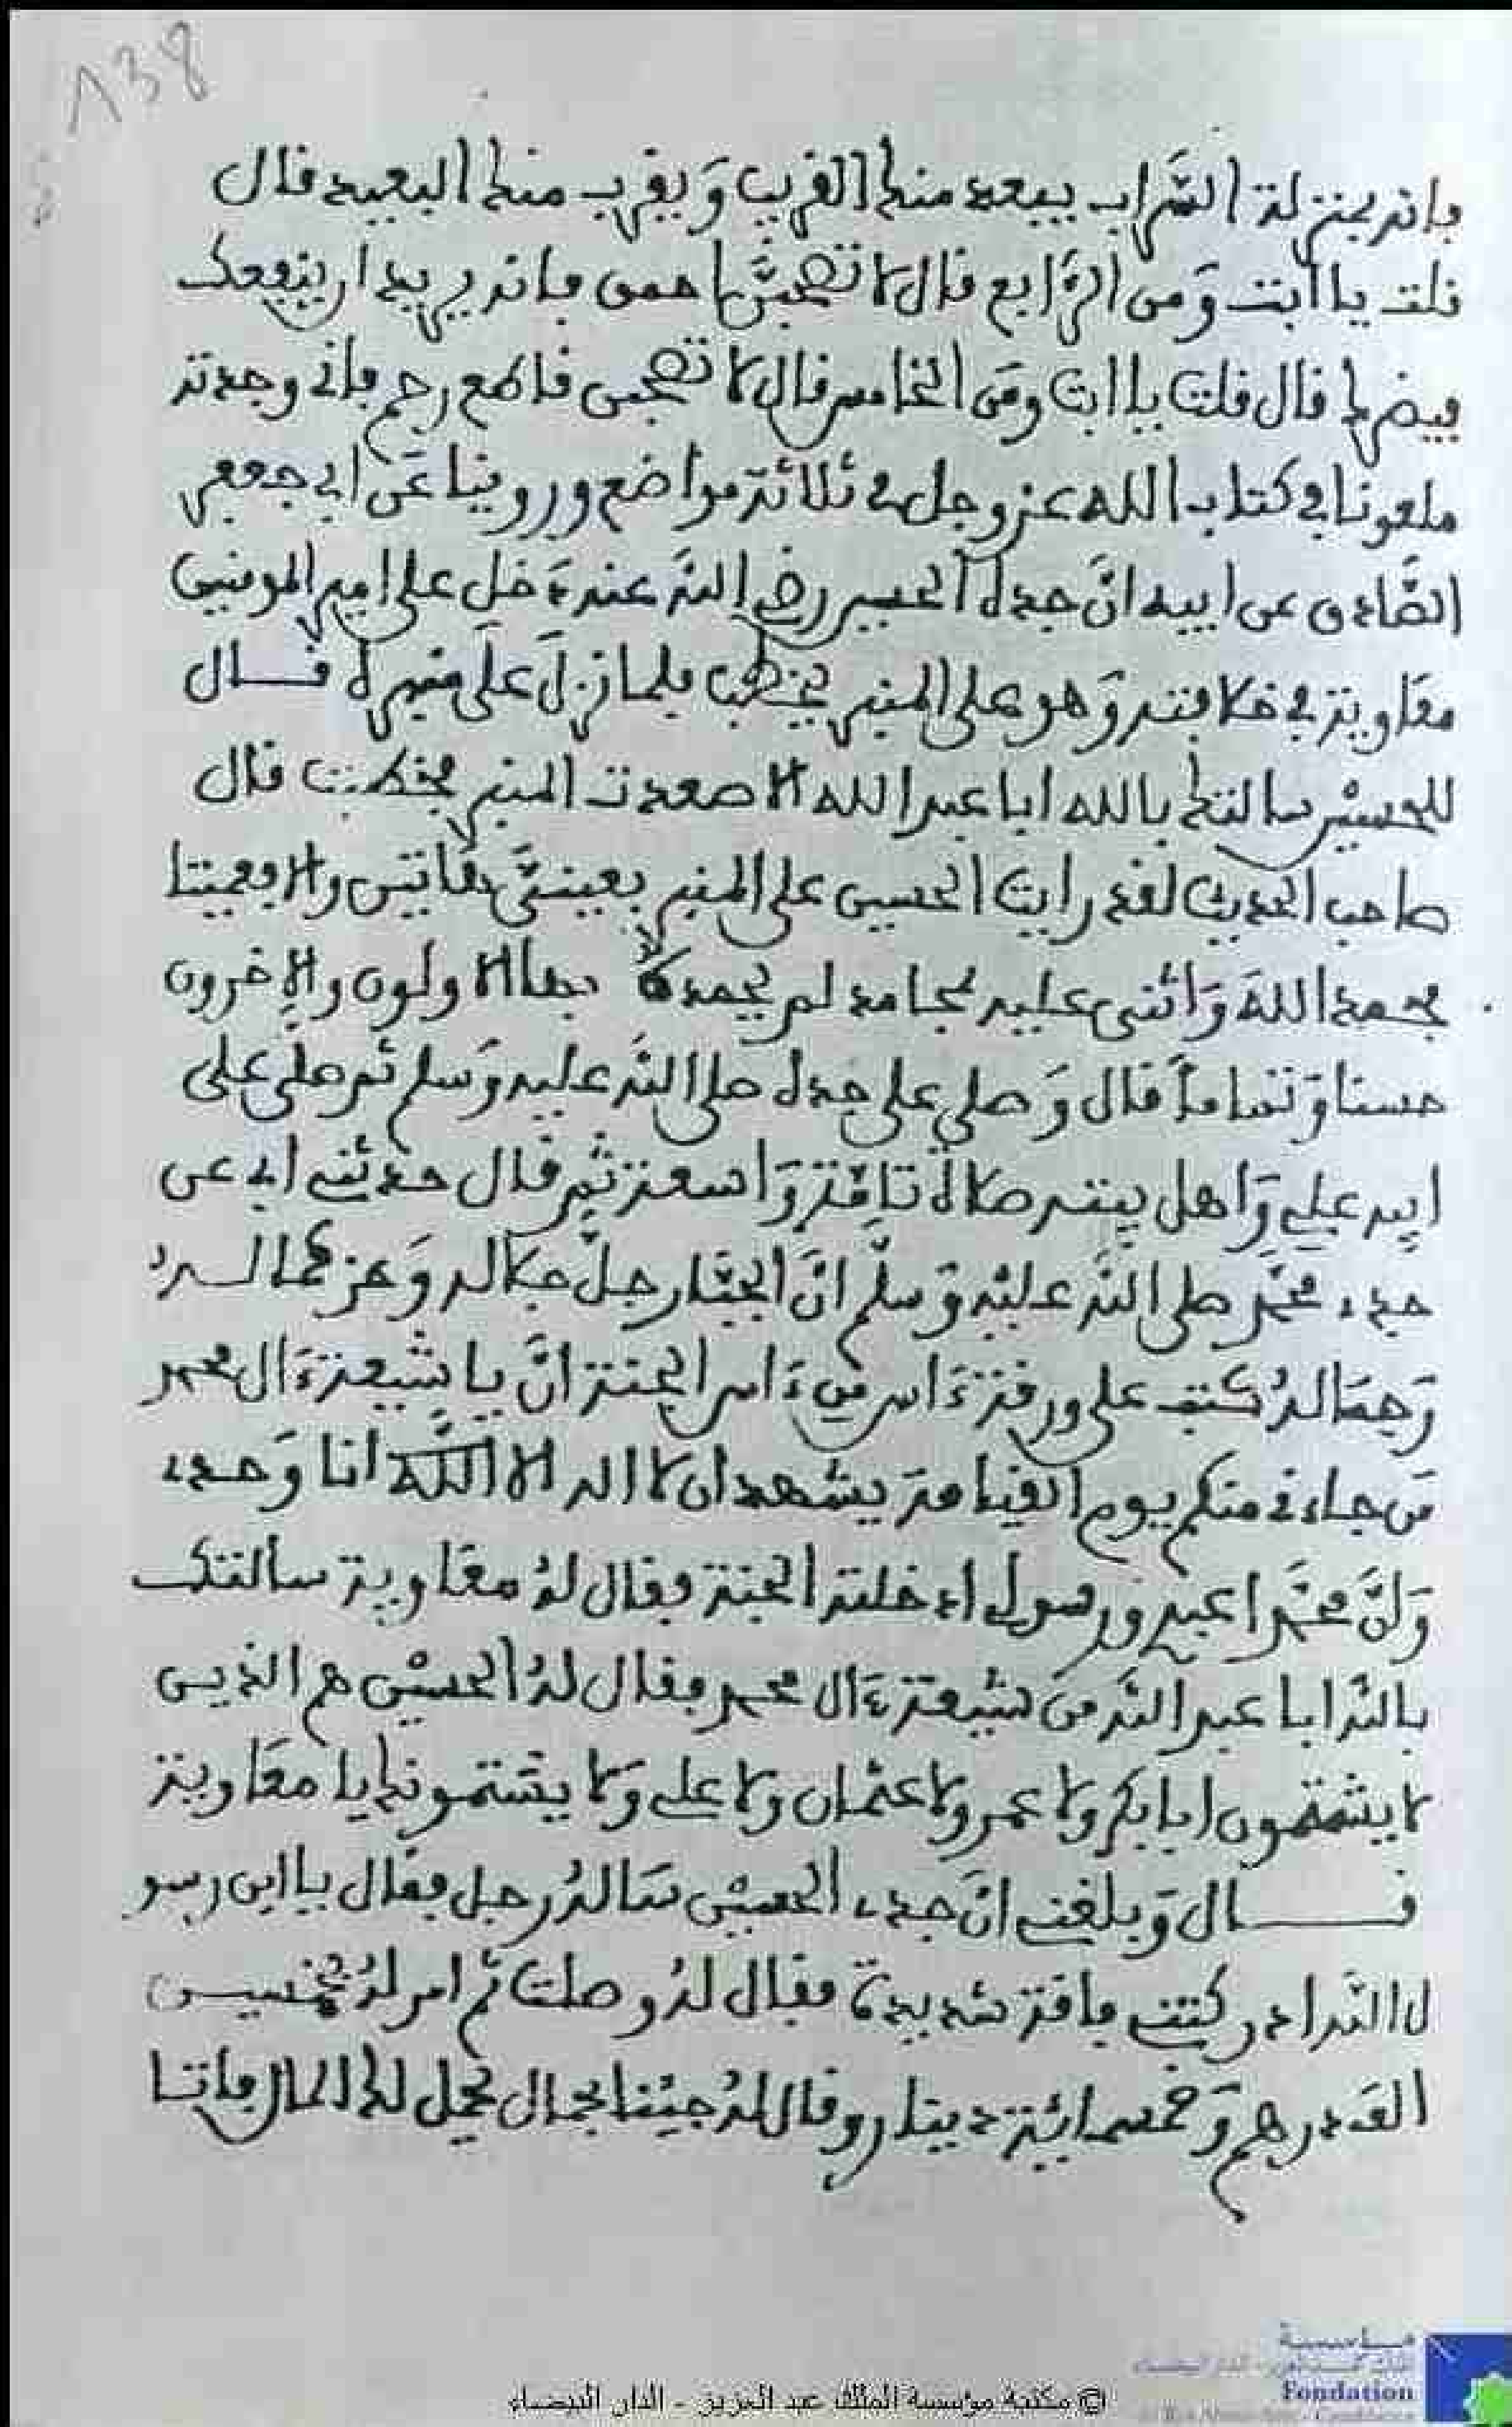 138
فإنه بمنزلة السراب يبعد منك القريب ويقرب منك البعيد قال
قلت يا ابت ومن الرابع قال لا تصحبن احمق فانه يريد ان ينفعك
فيضرك قال قلت يا ابت ومن الخامس قال لا تصحبن قاطع رحم فاني وجدته
ملعونا في كتاب الله عز وجل في ثلاثة مواضع وروينا عن ابي جعفر
الصادق عن ابيه ان جده الحسين رضي الله عنه دخل على امير المومنين
معاوية في خلافته وهو على المنبر يخطب فلما نزل على منبره قال
للحسين سالتك بالله ابا عبد الله الا صعدت المنبر فخطبت قال
صاحب الحديث لقد رايت الحسين على المنبر بعينتي هاتين والا فعميتا
فحمد الله واثنى عليه بمحامد لم يحمده بها الاولون والاخرون
حسنا وتماما قال وصلى على جده صلى الله عليه وسلم ثم صلى على
ابيه علي واهل بيته صلاة تامة واسعة ثم قال حدثني ابي عن
جده محمد صلى الله عليه وسلم ان الجبار جل جلاله وعز كماله
وجماله كتب على ورقة ءاس من ءاس الجنة ان يا شيعة ءال محمد
من جاءني منكم يوم القيامة يشهد ان لا اله الا الله انا وحده
وان محمدا عبدي ورسولي ادخلته الجنة فقال له معاوية سالتك
بالله ابا عبد الله من شيعة ءال محمد فقال له الحسين هم الذين
لا يشتمون ابا بكر ولا عمر ولا عثمان ولا علي ولا يشتمونك يا معاوية
قال وبلغني ان جده الحسين ساله رجل فقال يا ابن رسو
ل الله ادركتني فاقة شديدة فقال له وصلت ثم امر له بخمسين
الف درهم وخمسمائة دينار وقال له جئنا بحمال يحمل لك المال فاتا
مؤسسة
Fondation
© مكتبة مؤسسة الملك عبد العزيز - الدار البيضاء